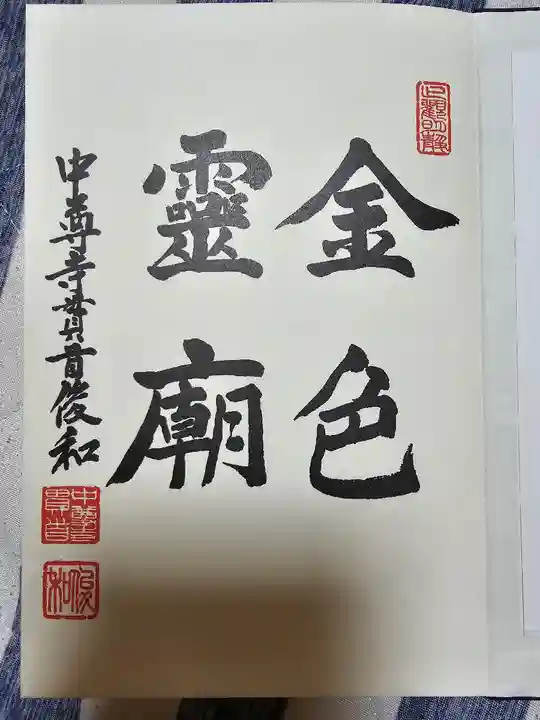 止觀明靜
金色
靈廟
中尊寺貫首俊和
中尊寺貫首
俊和